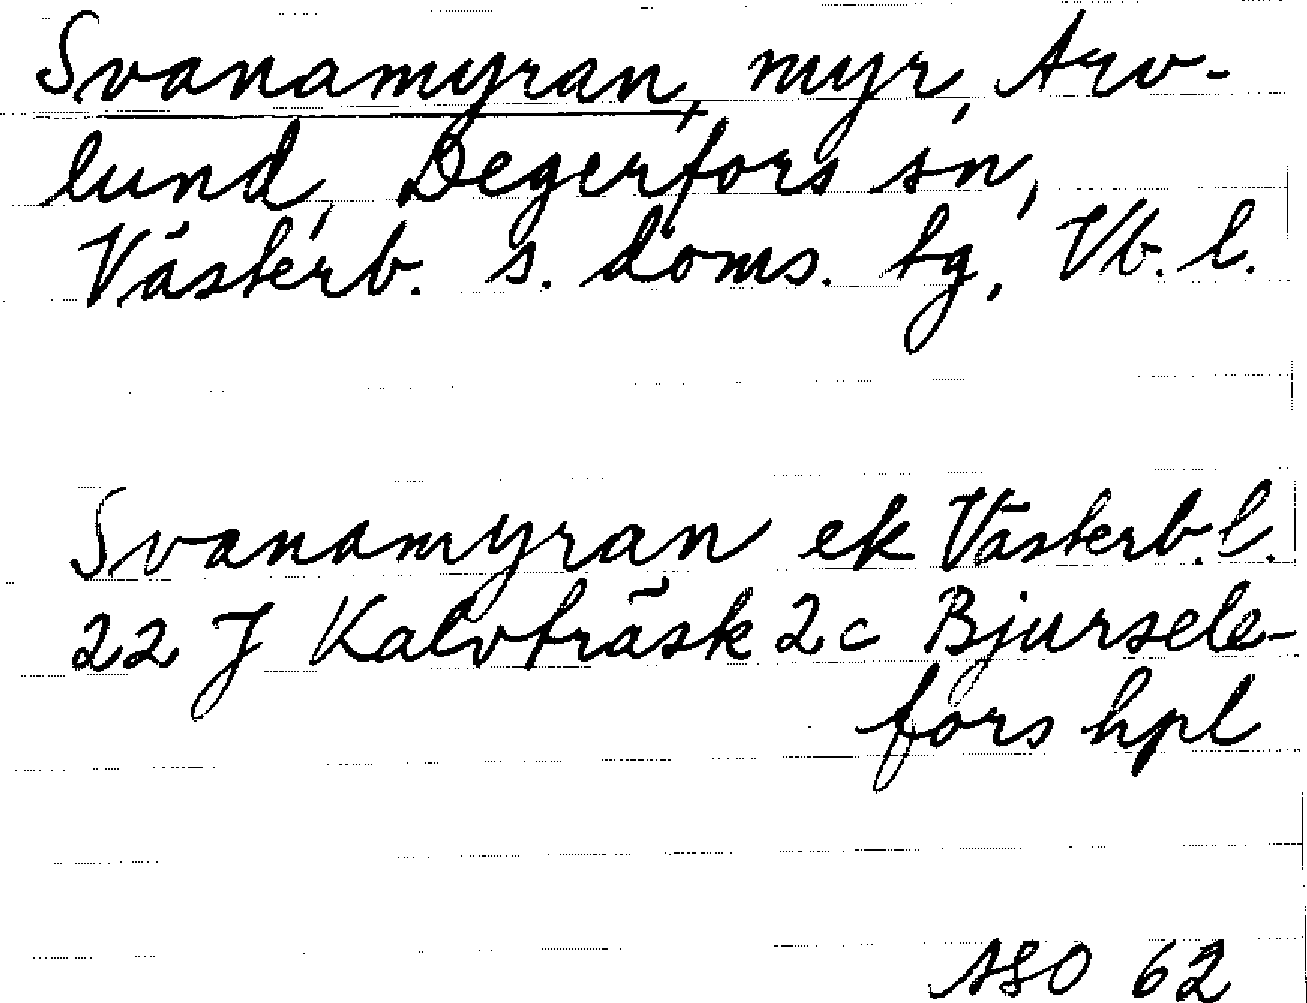 Svanamyran, myr, Arv-
lund, Degerfors sn,
Västerb. s. doms. tg, Vb. l.
Svanamyran ek Västerb. l.
22 J Kalvträsk 2c Bjursele-
fors hpl
ASO 62